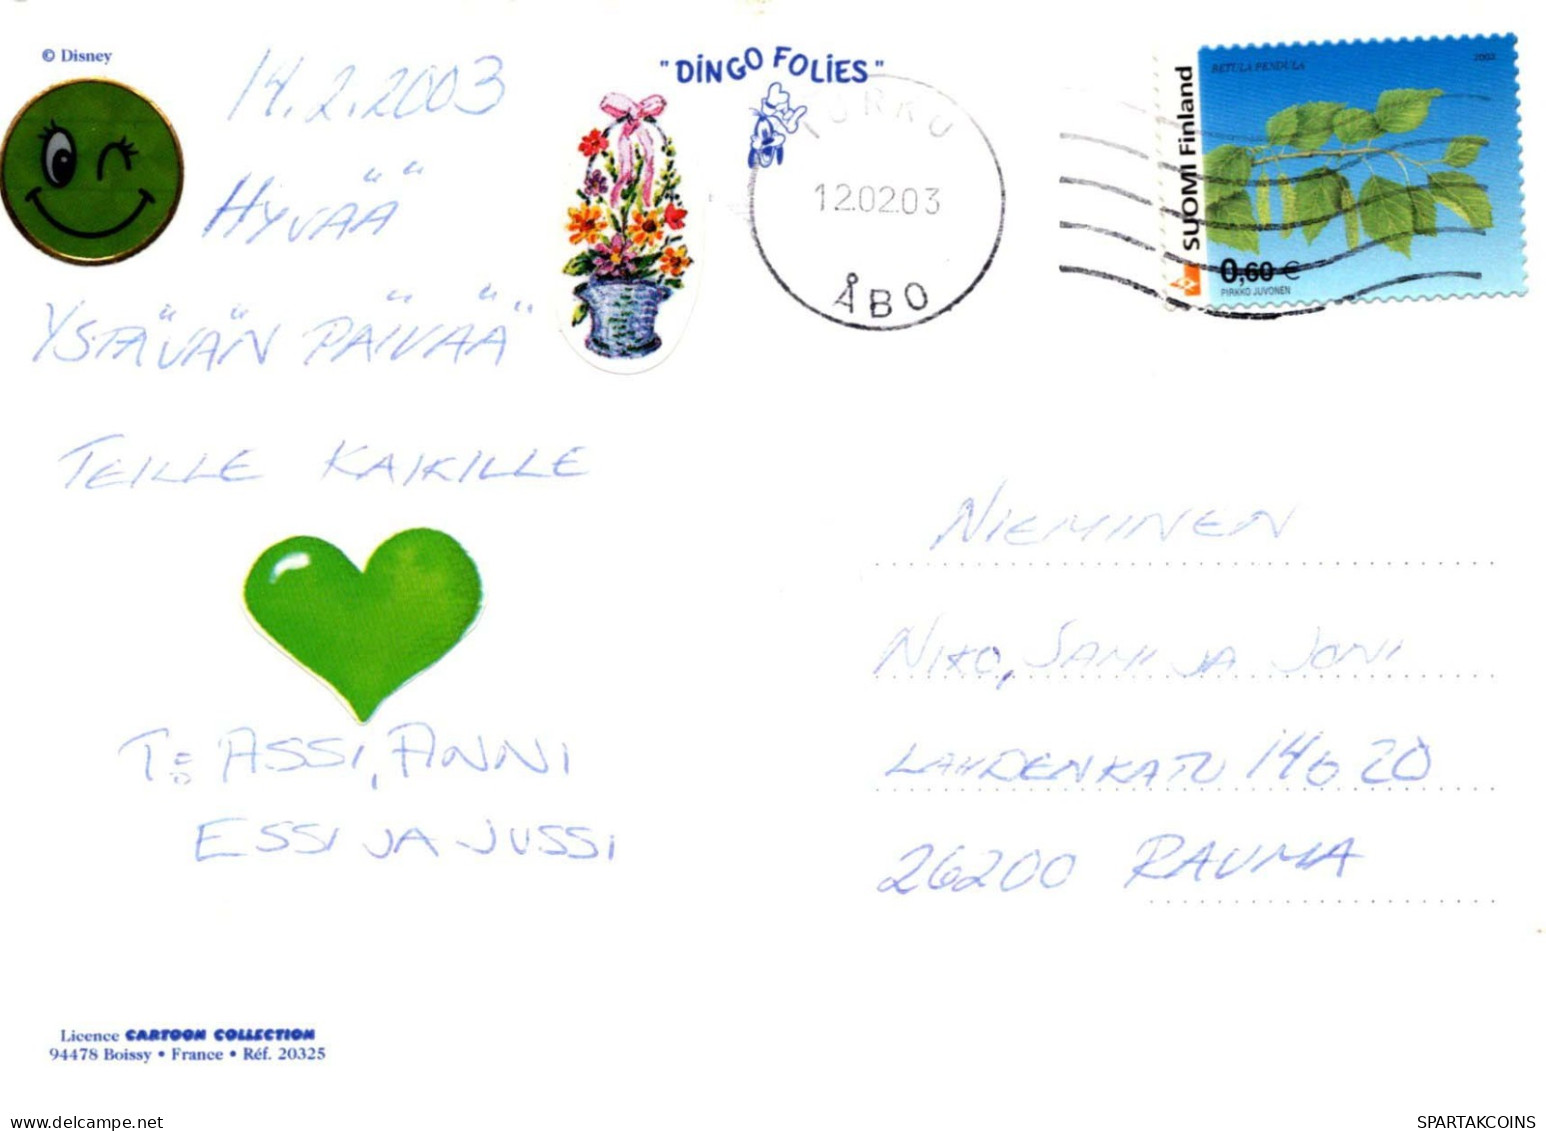 © Disney
14.2.2003
HYVÄÄ
YSTÄVÄN PÄIVÄÄ
TEILLE KAIKILLE
T: ASSI, ANNI
ESSI JA JUSSI
Licence CARTOON COLLECTION
94478 Boissy • France • Réf. 20325
"DINGO FOLIES"
TURKU
12.02.03
ÅBO
BETULA PENDULA
2002
SUOMI Finland
0,60 €
PIRKKO JUVONEN
NIEMINEN
NIKO, SAMI JA JONI
LAHDENKATU 14 G 20
26200 RAUMA
www.delcampe.net
SPARTAKCOINS